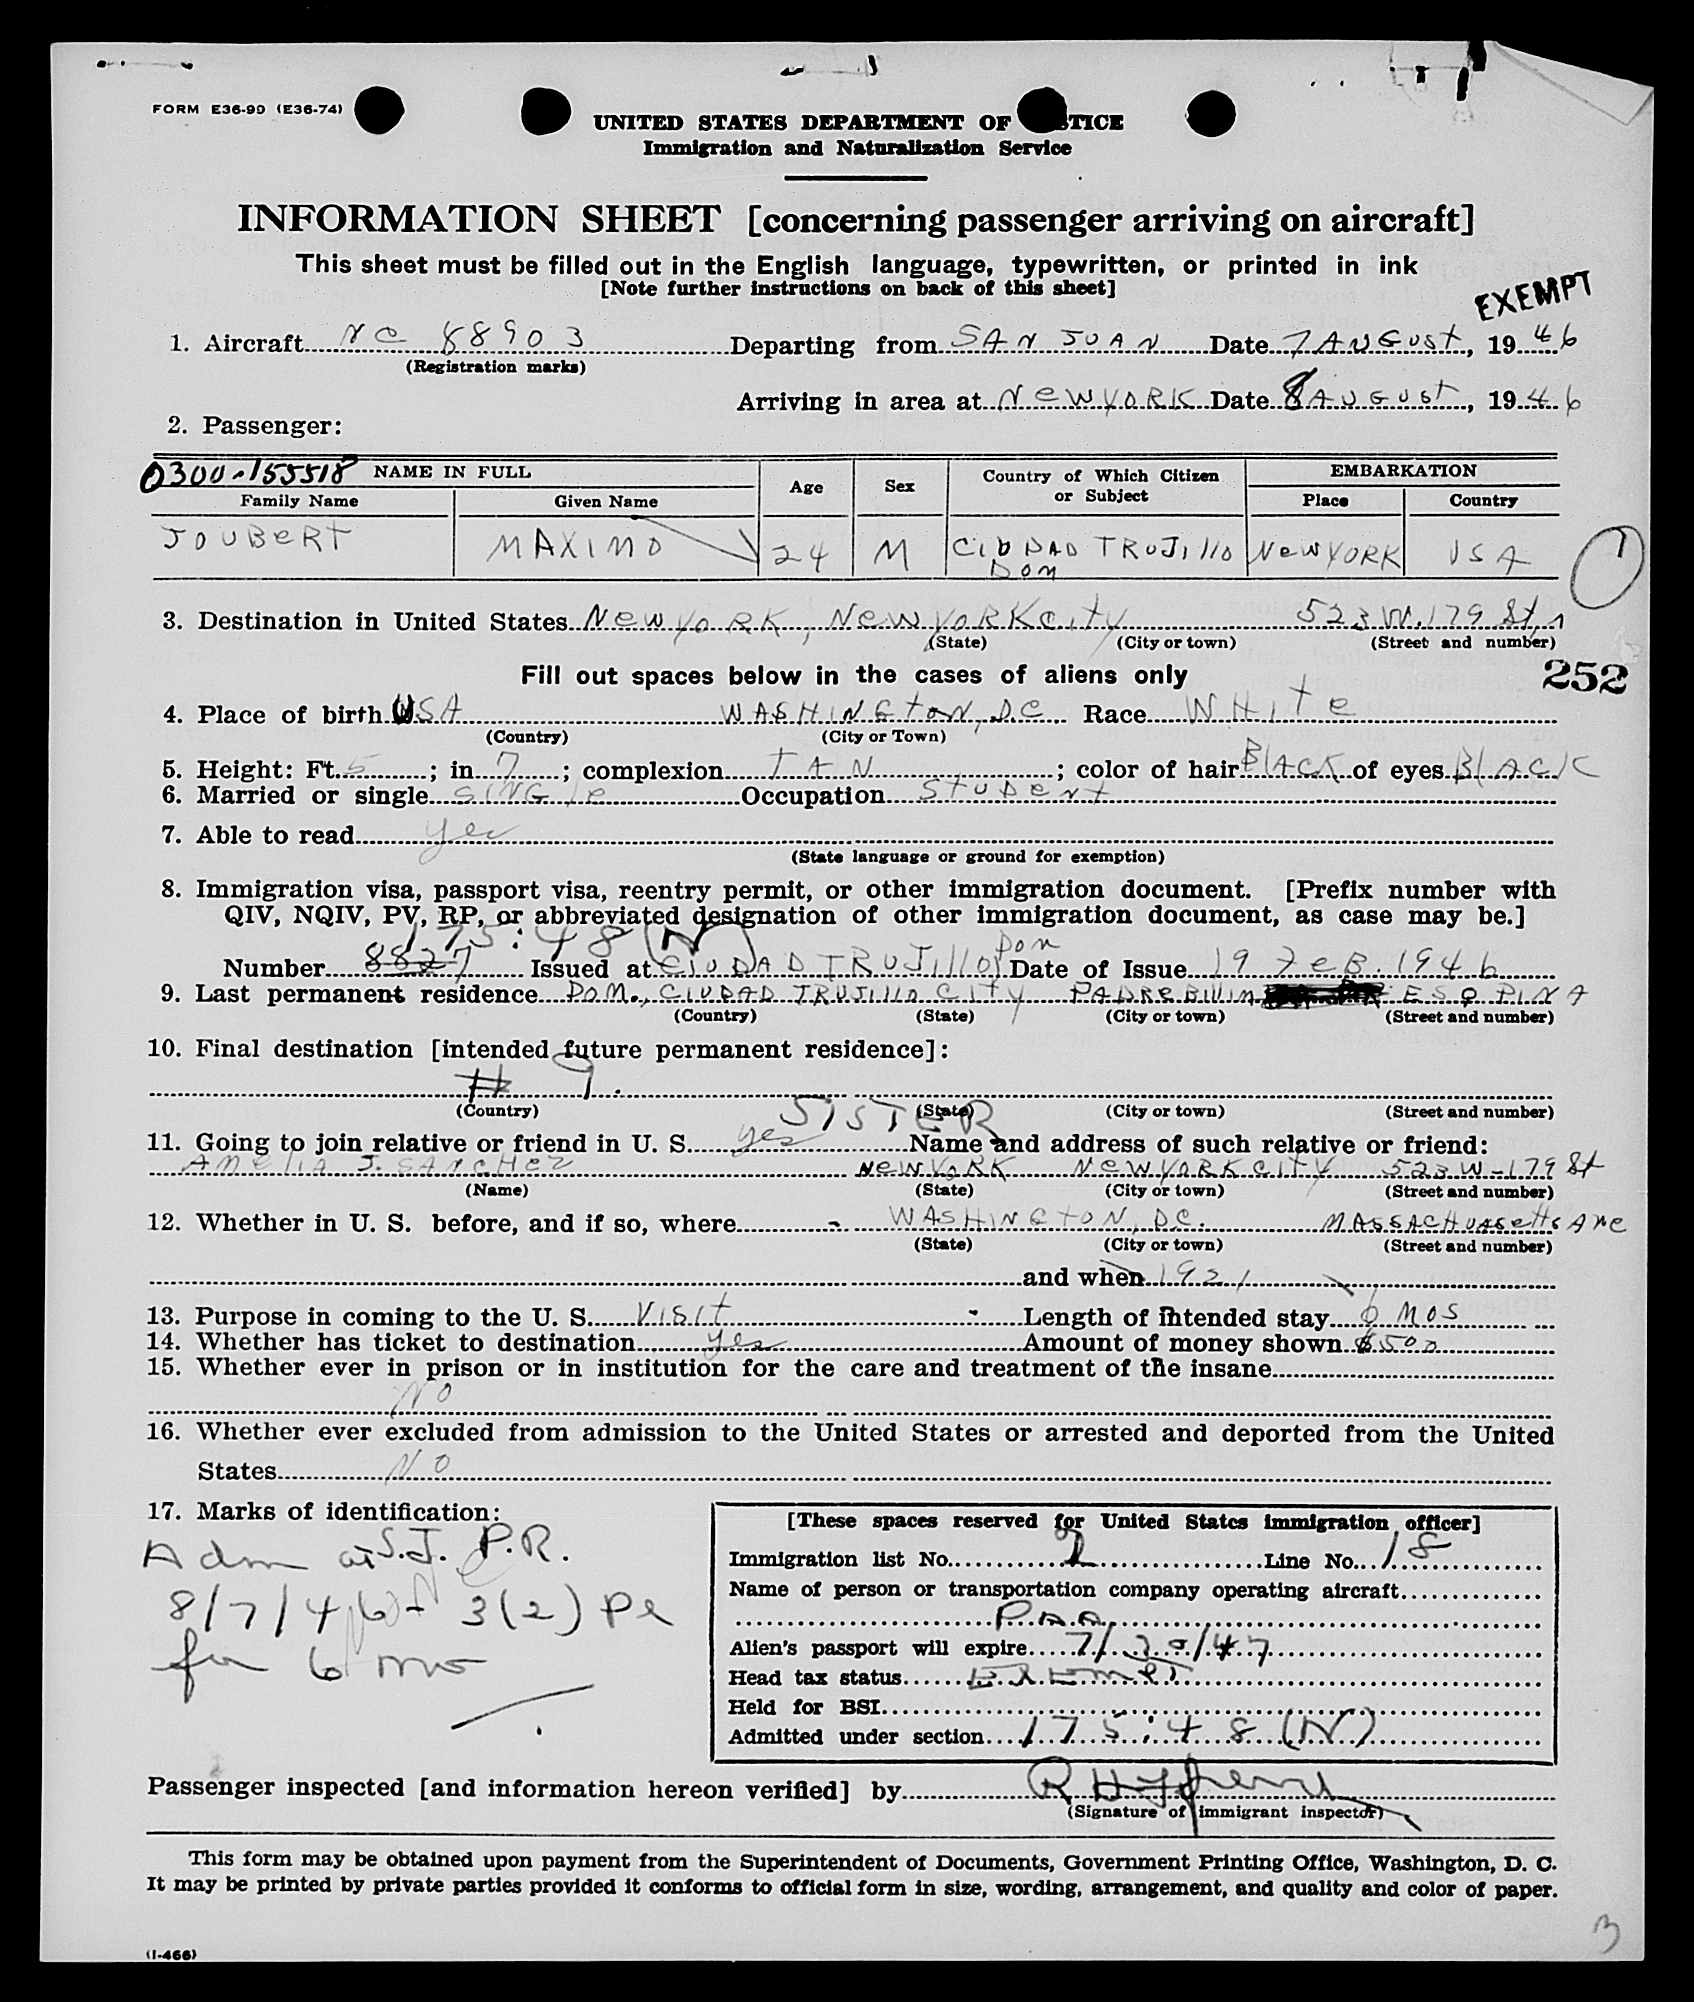 FORM E36-90 (E36-74)
UNITED STATES DEPARTMENT OF TICE
Immigration and Naturalization Service
INFORMATION SHEET [concerning passenger arriving on aircraft]
This sheet must be filled out in the English language, typewritten, or printed in ink
[Note further instructions on back of this sheet]
EXEMPT
1. Aircraft NC 88903 Departing from SAN JUAN Date 7 AUGUST, 1946
(Registration marks)
Arriving in area at NEW YORK Date 8 AUGUST, 1946
2. Passenger:
0300-155518 NAME IN FULL Age Sex Country of Which Citizen or Subject EMBARKATION
Family Name Given Name Place Country
JOUBERT MAXIMO 24 M CIUDAD TRUJILLO NEW YORK USA
DOM
3. Destination in United States NEW YORK, NEW YORK CITY 523 W. 179 St,
(State) (City or town) (Street and number)
Fill out spaces below in the cases of aliens only
252
4. Place of birth USA WASHINGTON, DC Race WHITE
(Country) (City or Town)
5. Height: Ft. 5; in. 7; complexion TAN; color of hair BLACK of eyes BLACK
6. Married or single SINGLE Occupation STUDENT
7. Able to read yes
(State language or ground for exemption)
8. Immigration visa, passport visa, reentry permit, or other immigration document. [Prefix number with
QIV, NQIV, PV, RP, or abbreviated designation of other immigration document, as case may be.]
175:48(N)
Number 8827 Issued at CIUDAD TRUJILLO, DOM Date of Issue 19 FEB. 1946
9. Last permanent residence DOM., CIUDAD TRUJILLO CITY PADRE BILLINI ESQ PINA
(Country) (State) (City or town) (Street and number)
10. Final destination [intended future permanent residence]:
# 9.
(Country) (State) (City or town) (Street and number)
SISTER
11. Going to join relative or friend in U. S. yes Name and address of such relative or friend:
AMELIA J. SANCHEZ NEW YORK NEW YORK CITY 523 W-179 St
(Name) (State) (City or town) (Street and number)
12. Whether in U. S. before, and if so, where WASHINGTON, DC. MASSACHUASETTS AVE
(State) (City or town) (Street and number)
and when 1921
13. Purpose in coming to the U. S. VISIT Length of intended stay 6 MOS
14. Whether has ticket to destination yes Amount of money shown $500
15. Whether ever in prison or in institution for the care and treatment of the insane
NO
16. Whether ever excluded from admission to the United States or arrested and deported from the United
States NO
17. Marks of identification:
Adm at S.J. P.R.
8/7/46 3(2) PR
for 6 mos
[These spaces reserved for United States immigration officer]
Immigration list No. 2 Line No. 18
Name of person or transportation company operating aircraft
P.A.A.
Alien's passport will expire 7/29/47
Head tax status EXEMPT
Held for BSI
Admitted under section 175:48(N)
Passenger inspected [and information hereon verified] by
(Signature of immigrant inspector)
This form may be obtained upon payment from the Superintendent of Documents, Government Printing Office, Washington, D. C.
It may be printed by private parties provided it conforms to official form in size, wording, arrangement, and quality and color of paper.
3
(I-466)